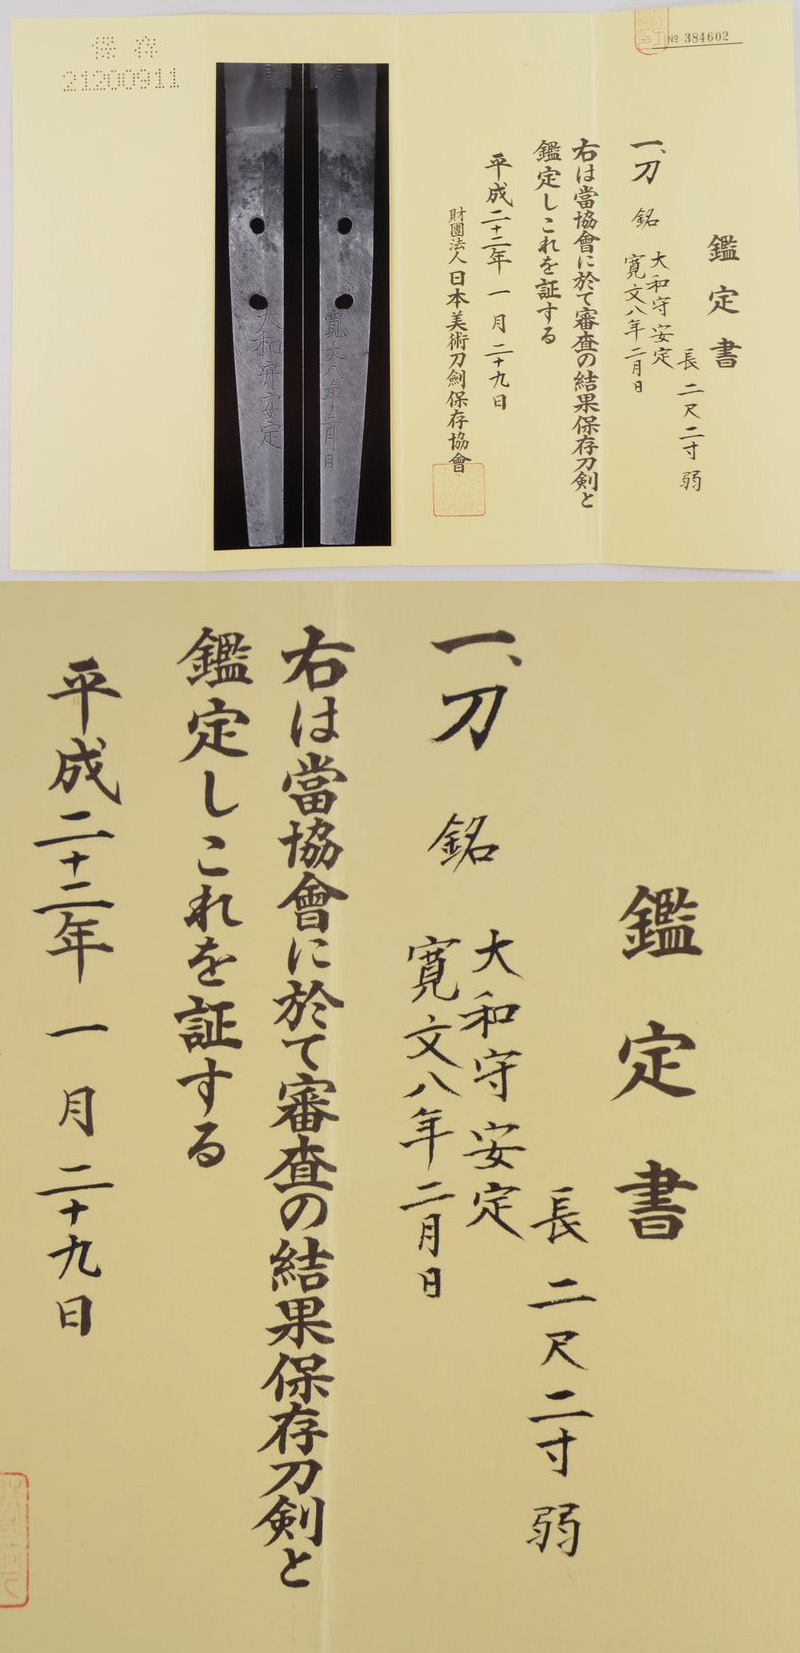 保存
21200911
大和守安定
寛文八年二月日
№ 384602
鑑定書
一、刀 銘 大和守安定
寛文八年二月日
長 二尺二寸 弱
右は當協會に於て審査の結果保存刀剣と
鑑定しこれを証する
平成二十二年 一月 二十九日
財團法人 日本美術刀劍保存協會
鑑定書
長 二尺二寸 弱
一、刀 銘 大和守安定
寛文八年二月日
右は當協會に於て審査の結果保存刀剣と
鑑定しこれを証する
平成二十二年 一月 二十九日